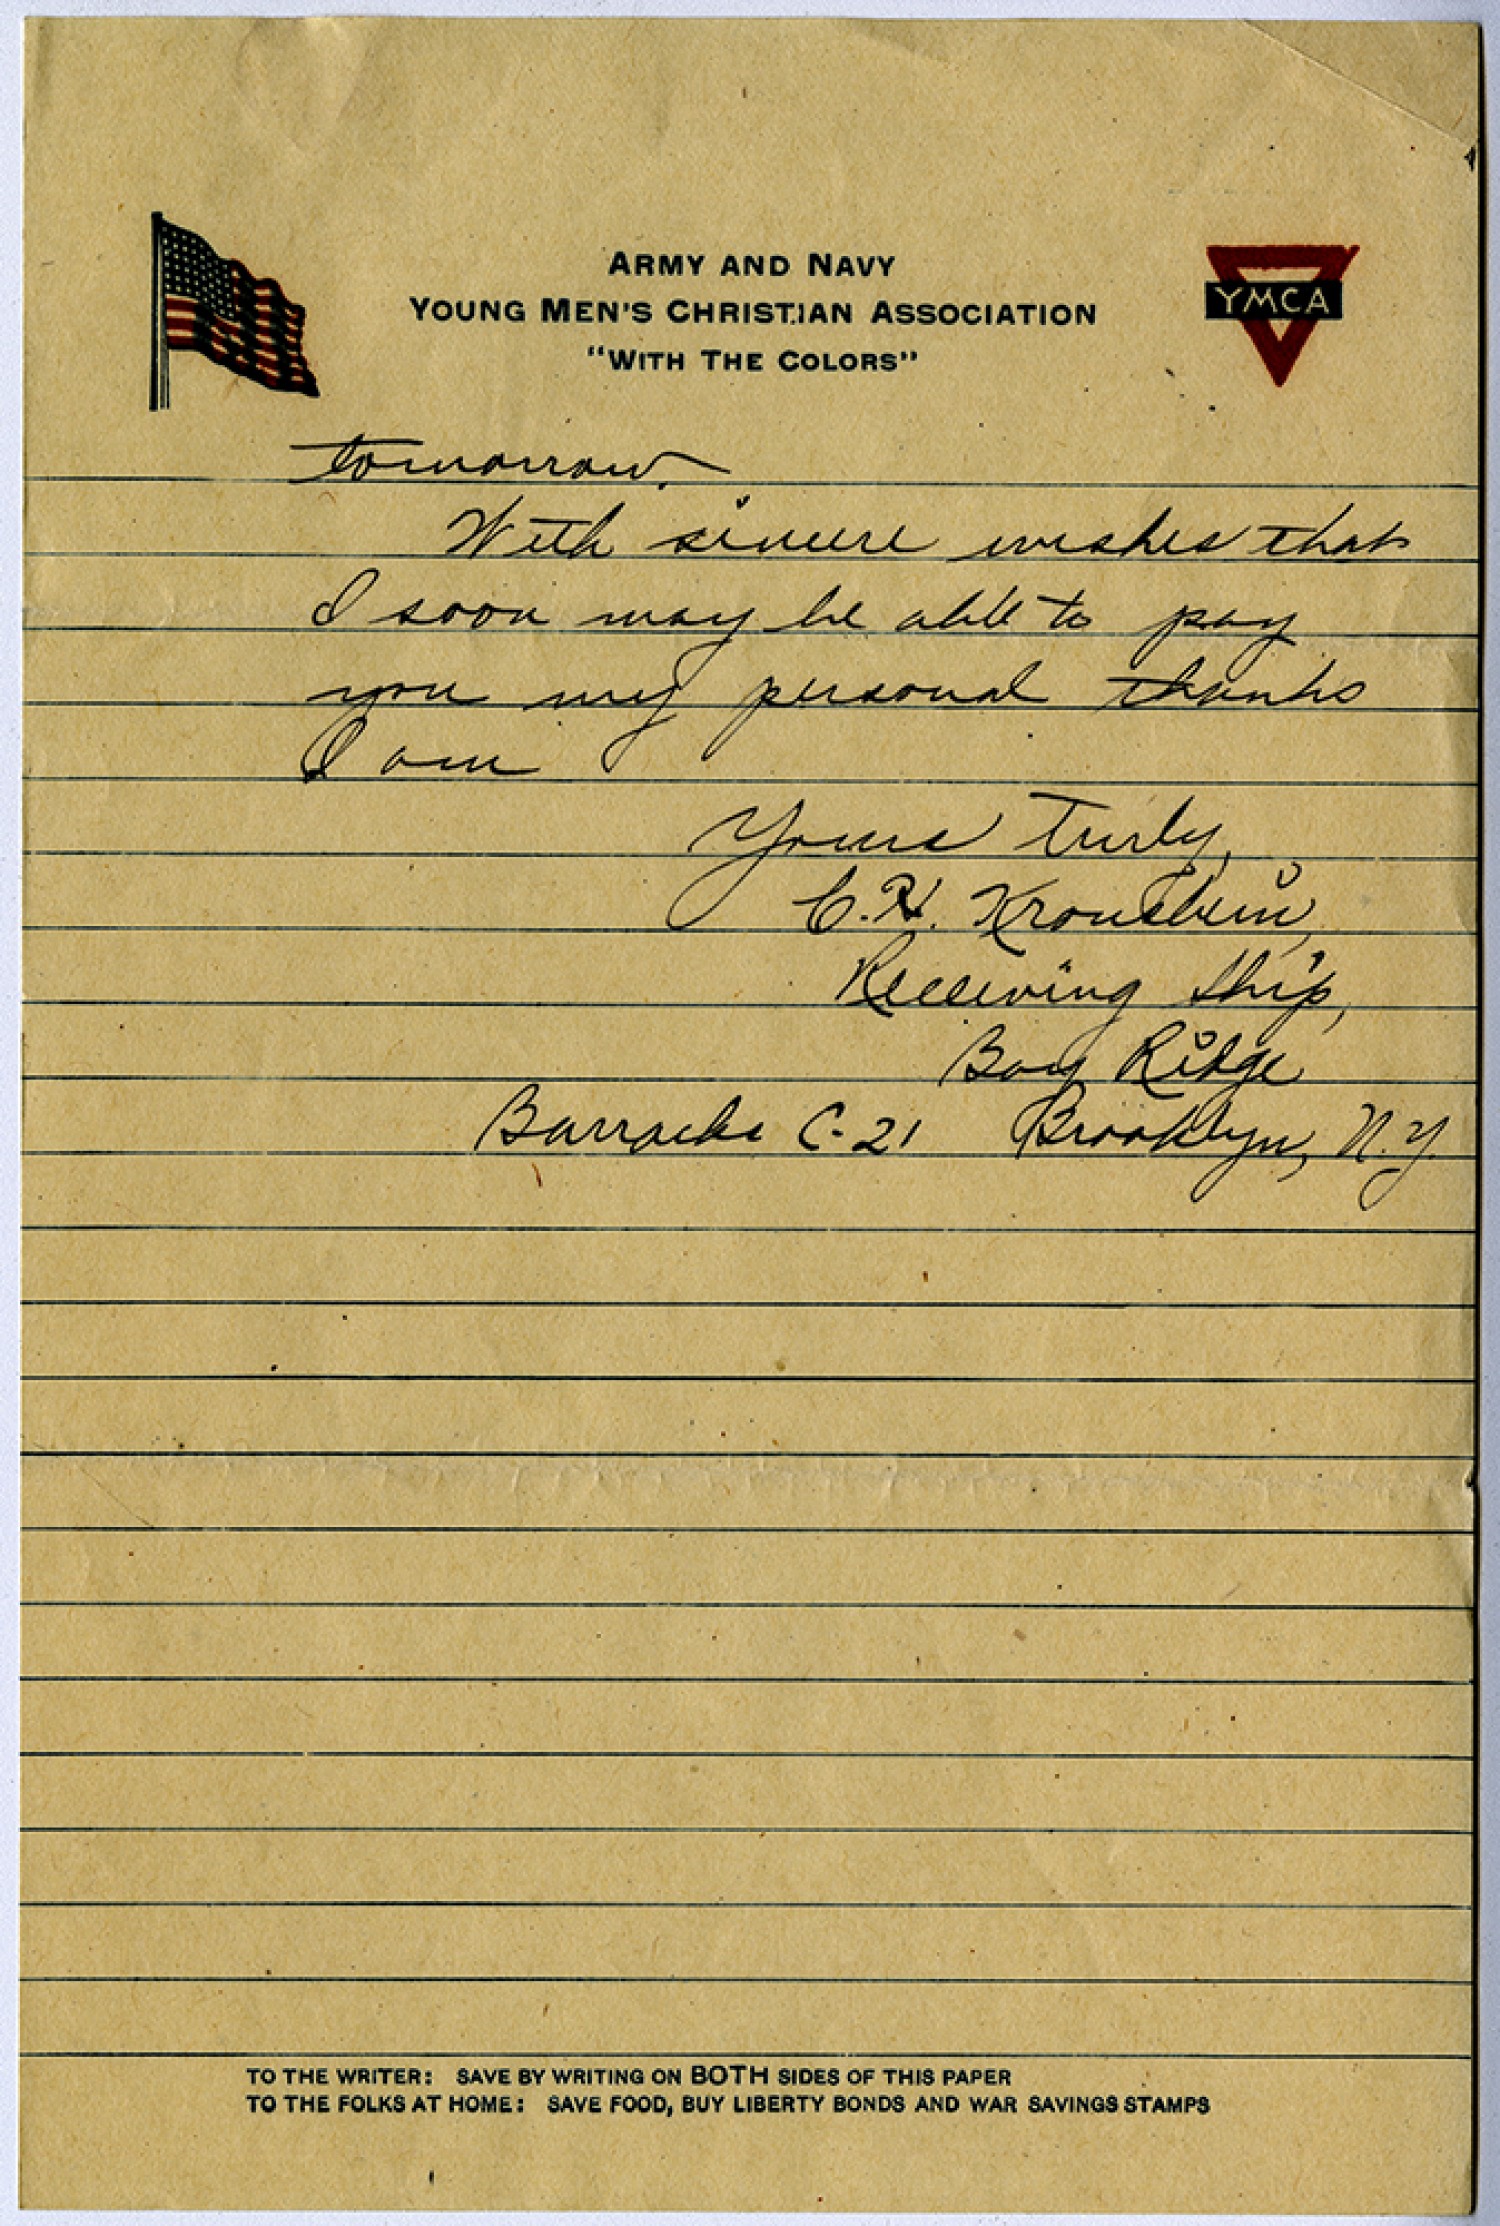 ARMY AND NAVY
YOUNG MEN'S CHRISTIAN ASSOCIATION
"WITH THE COLORS"
YMCA
tomorrow.
With sincere wishes that
I soon may be able to pay
you my personal thanks
I am
Yours Truly,
C. H. Kronshein,
Receiving Ship,
Bay Ridge
Barracks C-21 Brooklyn, N.Y.
TO THE WRITER: SAVE BY WRITING ON BOTH SIDES OF THIS PAPER
TO THE FOLKS AT HOME: SAVE FOOD, BUY LIBERTY BONDS AND WAR SAVINGS STAMPS